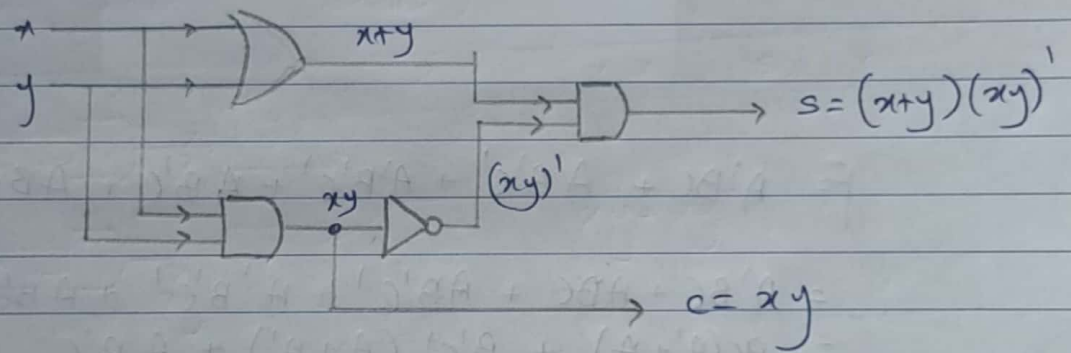 x
x+y
y
s = (x+y)(xy)'
(xy)'
xy
c = xy